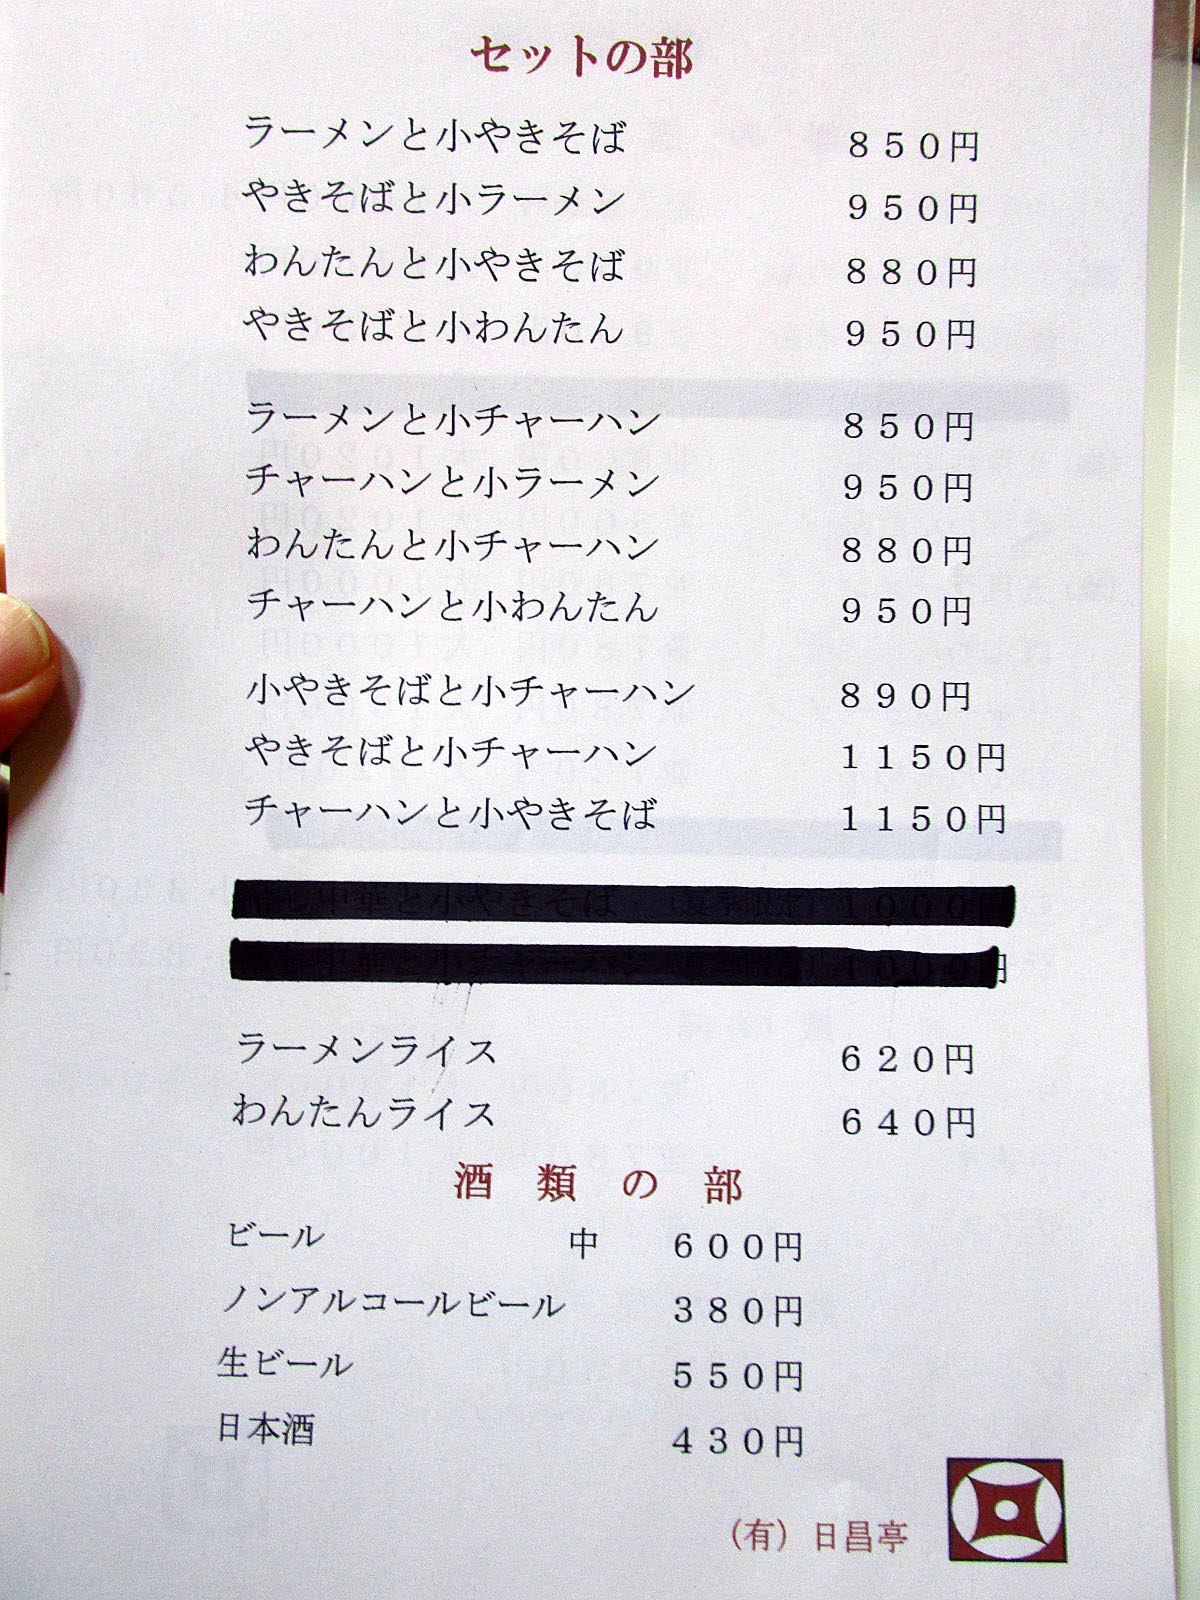 セットの部
ラーメンと小やきそば ８５０円
やきそばと小ラーメン ９５０円
わんたんと小やきそば ８８０円
やきそばと小わんたん ９５０円
ラーメンと小チャーハン ８５０円
チャーハンと小ラーメン ９５０円
わんたんと小チャーハン ８８０円
チャーハンと小わんたん ９５０円
小やきそばと小チャーハン ８９０円
やきそばと小チャーハン １１５０円
チャーハンと小やきそば １１５０円
中華と小やきそば １０００円
中華と小チャーハン １０００円
ラーメンライス ６２０円
わんたんライス ６４０円
酒類の部
ビール 中 ６００円
ノンアルコールビール ３８０円
生ビール ５５０円
日本酒 ４３０円
（有）日昌亭